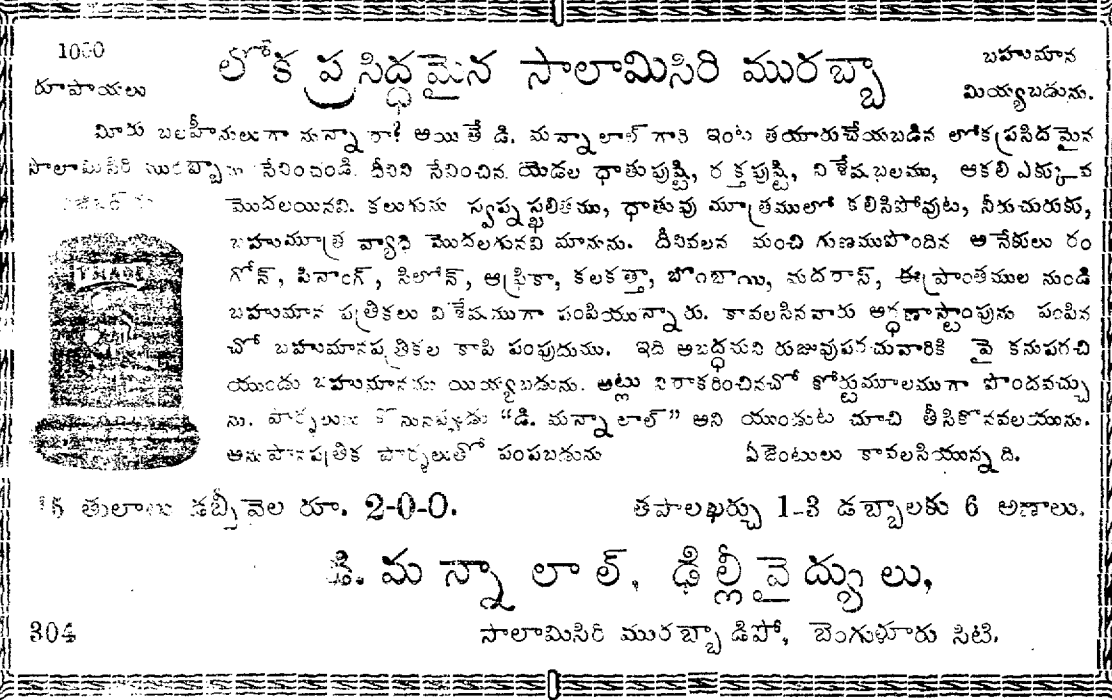 రూపాయలు
లోకప్రసిద్ధమైన సాలామిసిరి మురబ్బా
బహుమాన
మియ్యబడును.
మీరు బలహీనులుగా నున్నారా? అయితే డి. మన్నాలాల్ గారి ఇంట తయారుచేయబడిన లోకప్రసిదమైన
సాలామిసిరి మురబ్బాను సేవించండి. దీనిని సేవించిన యెడల ధాతుపుష్టి, రక్తపుష్టి, విశేషబలము, ఆకలి ఎక్కువ
మొదలయినవి. కలుగును స్వప్నస్ఖలితము, ధాతువు మూత్రములో కలిసిపోవుట, నీరుచురుకు,
బహుమూత్ర వ్యాధి మొదలగునవి మానును. దీనివలన మంచి గుణముపొందిన అనేకులు రం
గోన్, పినాంగ్, సిలోన్, ఆఫ్రికా, కలకత్తా, బొంబాయి, మదరాస్, ఈప్రాంతముల నుండి
బహుమాన పత్రికలు విశేషముగా పంపియున్నారు. కావలసినవారు అర్ధణాస్టాంపును పంపిన
చో బహుమానపత్రికల కాపి పంపుదుము. ఇది అబద్ధమని రుజువుపరచువారికి పై కనుపరచి
యుండు బహుమానము యియ్యబడును. అట్లు నిరాకరించినచో కోర్టుమూలముగా పొందవచ్చు
ను. పార్శలును కొనునప్పుడు "డి. మన్నాలాల్" అని యుండుట చూచి తీసికొనవలయును.
అనుపానపత్రిక పార్శలుతో పంపబడును ఏజెంటులు కావలసియున్నది.
TRADE
తులాలు డబ్బీవెల రూ. 2-0-0. తపాలఖర్చు 1-3 డబ్బాలకు 6 అణాలు.
డి. మన్నాలాల్, ఢిల్లీవైద్యులు,
304 సాలామిసిరి మురబ్బా డిపో, బెంగుళూరు సిటి.